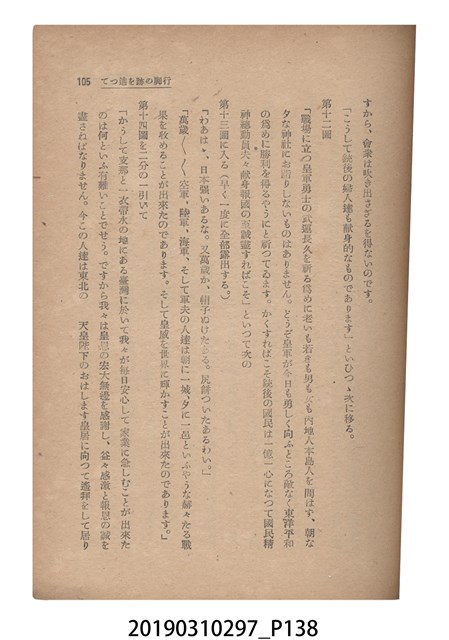 行脚の跡を追つて 105
すから、會衆は吹き出さざるを得ないのです。
「こうして銃後の婦人達も献身的なものであります」といひつゝ次に移る。
第十二圖
「戰場に立つ皇軍勇士の武運長久を祈る爲めに老いも若きも男も女も內地人本島人を問はず、朝な
夕な神社にお詣りしないものはありません。どうぞ皇軍が今日も勇しく向ふところ敵なく東洋平和
の爲めに勝利を得るやうにと祈つてゐます。かくすればこそ銃後の國民は一億一心になつて國民精
神總動員夫々献身報國の至誠盡すればこそ」といつて次の
第十三圖に入る(早く一度に全部露出する。)
「わあは、日本强いあるな。又萬歲か、帽子ぬけたある。尻餅ついたあるわい。」
「萬歲〱〱空軍、陸軍、海軍、そして軍夫の人達は朝に一城、夕に一邑といふやうな赫々たる戰
果を收めることが出來たのであります。そして皇威を世界に輝かすことが出來たのであります。」
第十四圖を二分の一引いて
「かうして支那と一衣帶水の地にある臺灣に於いて我々が每日安心して家業に念しむことが出來た
のは何といふ有難いことでせう。ですから我々は皇恩の宏大無邊を感謝し、益々感激と報恩の誠を
盡さねばなりません。今この人達は東北の 天皇陛下のおはします皇居に向つて遙拜をして居り
20190310297_P138